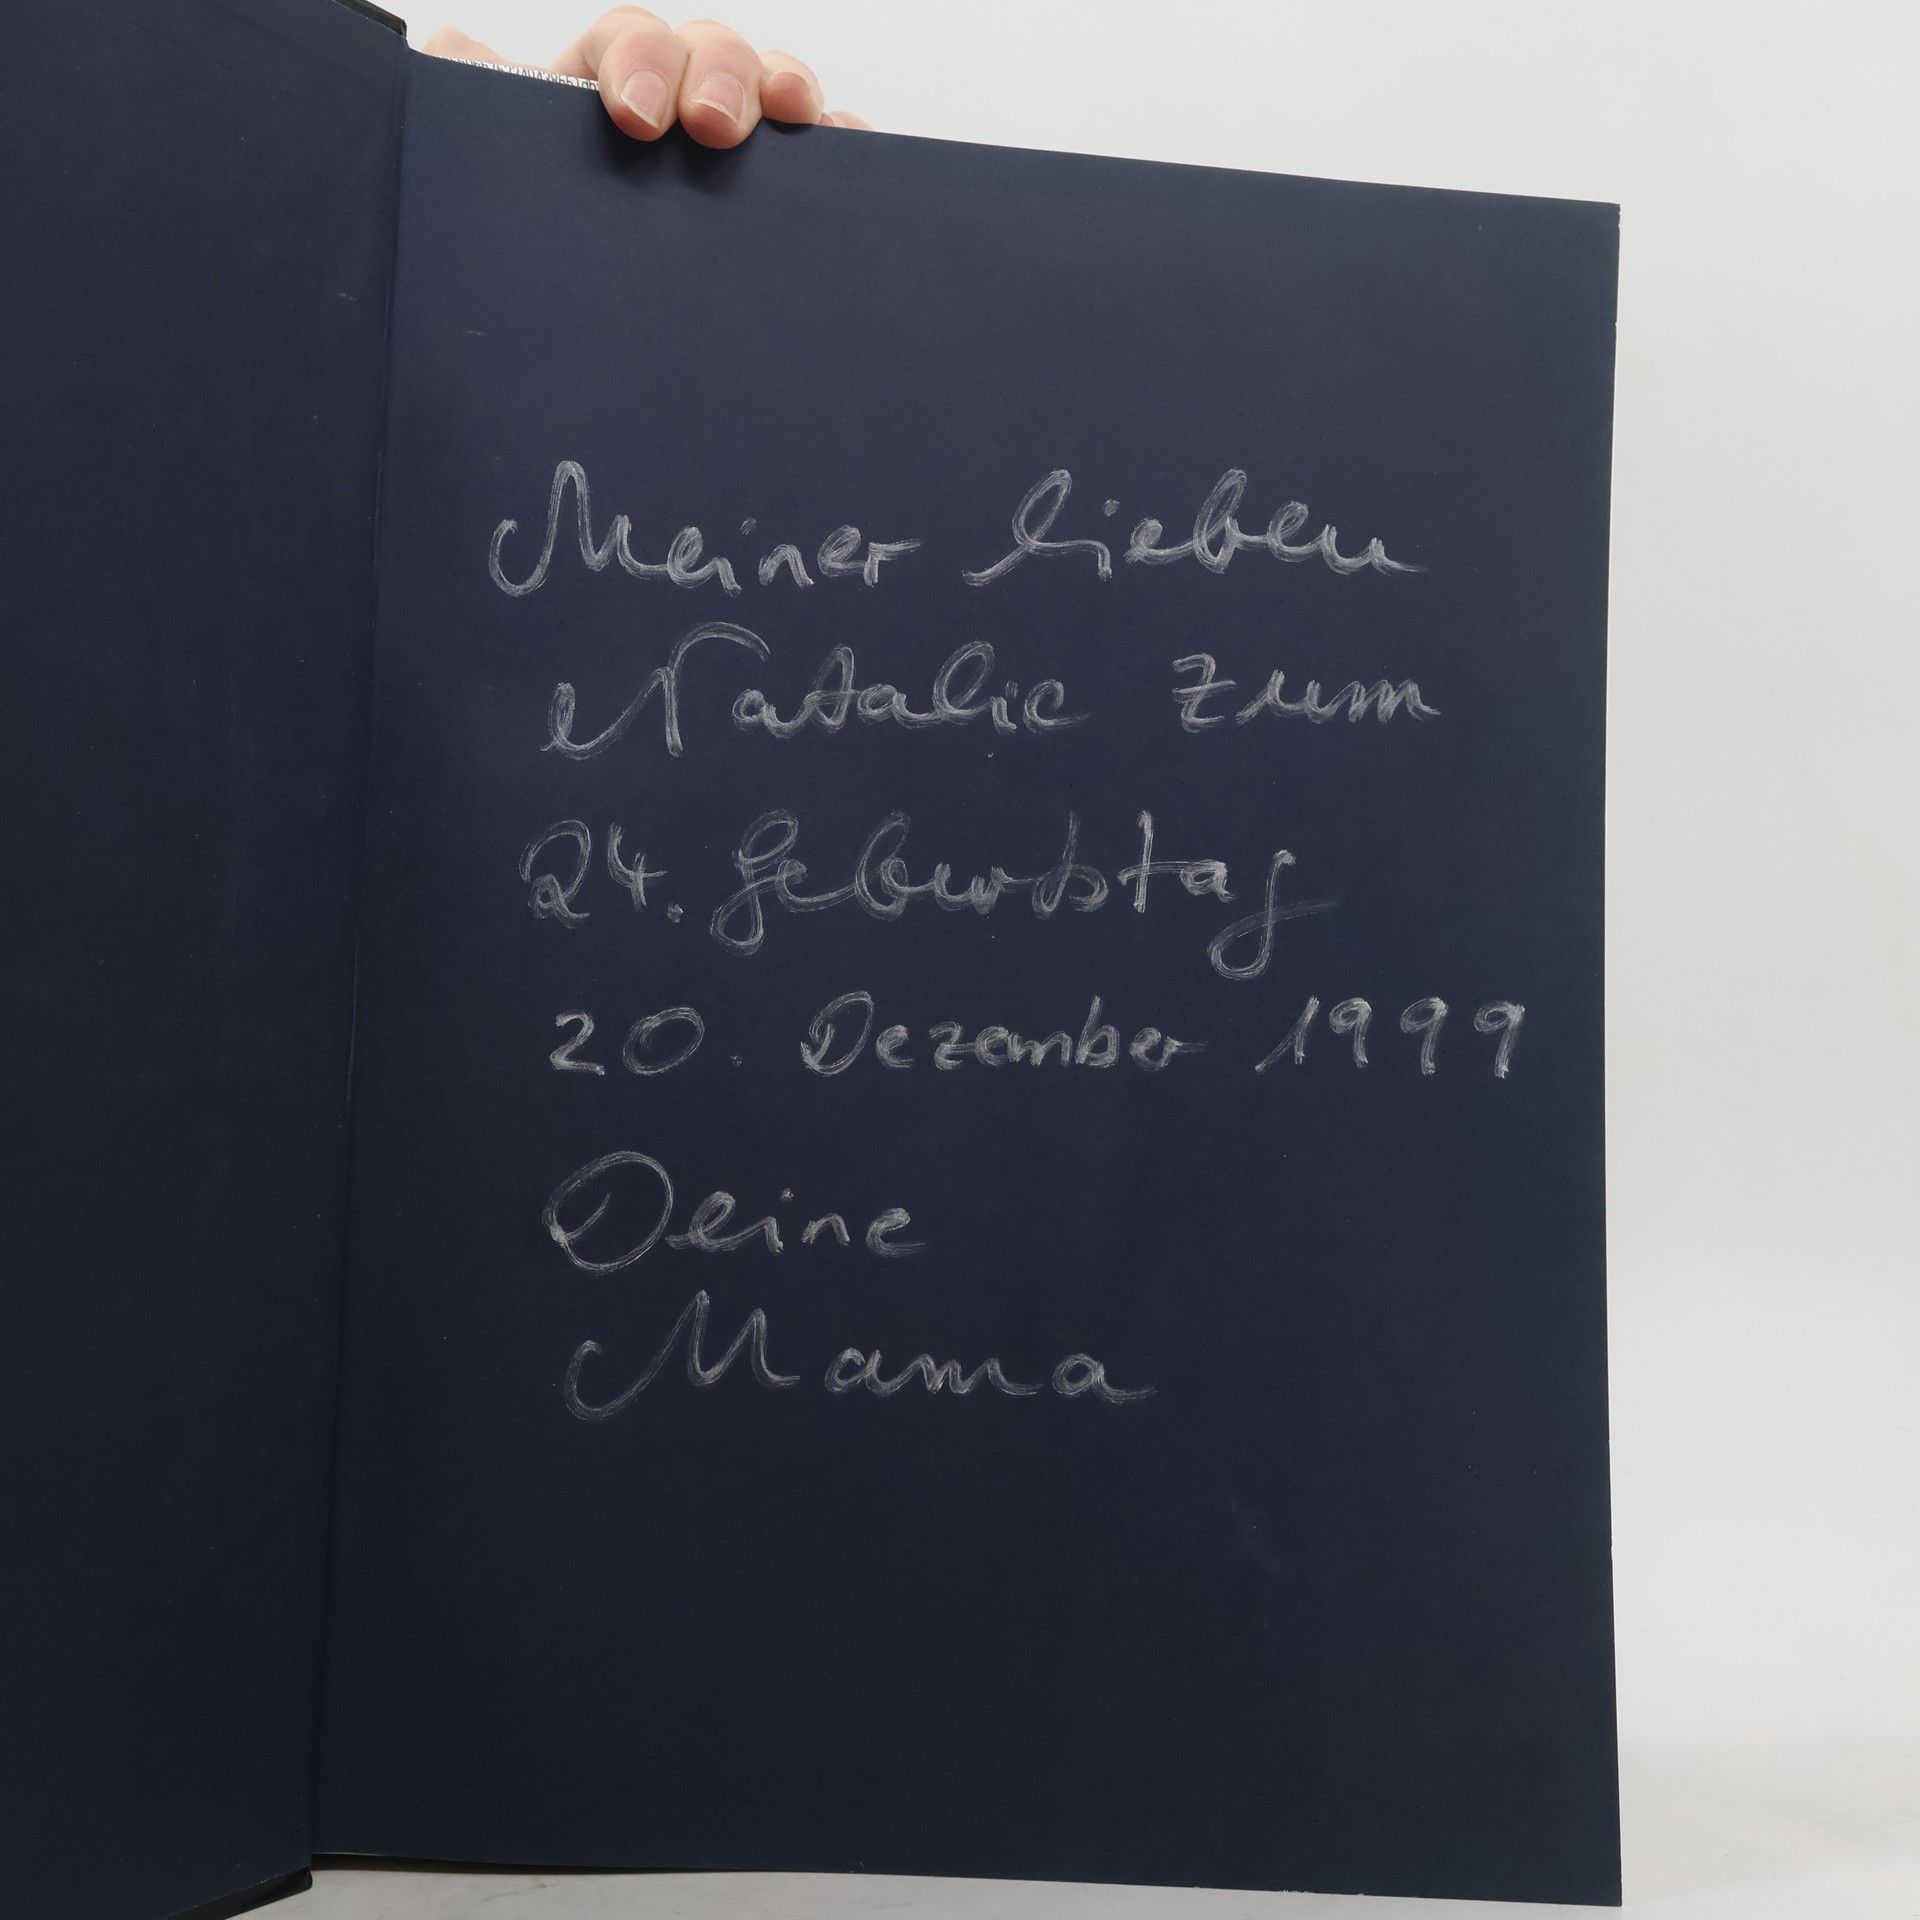 Meiner lieben
Natalie zum
24. Geburtstag
20. Dezember 1999
Deine
Mama